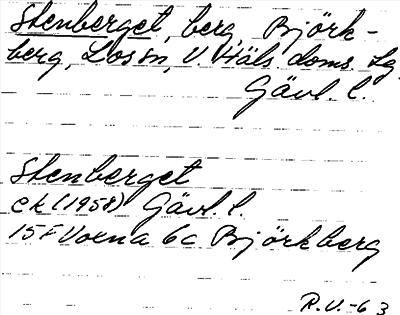 Stenberget, berg, Björk-
berg, Los sn, V. Häls. doms. Lg.
Gävl. l.
Stenberget
ek (1958) Gävl. l.
15F Voxna 6c Björkberg
R.V. -63